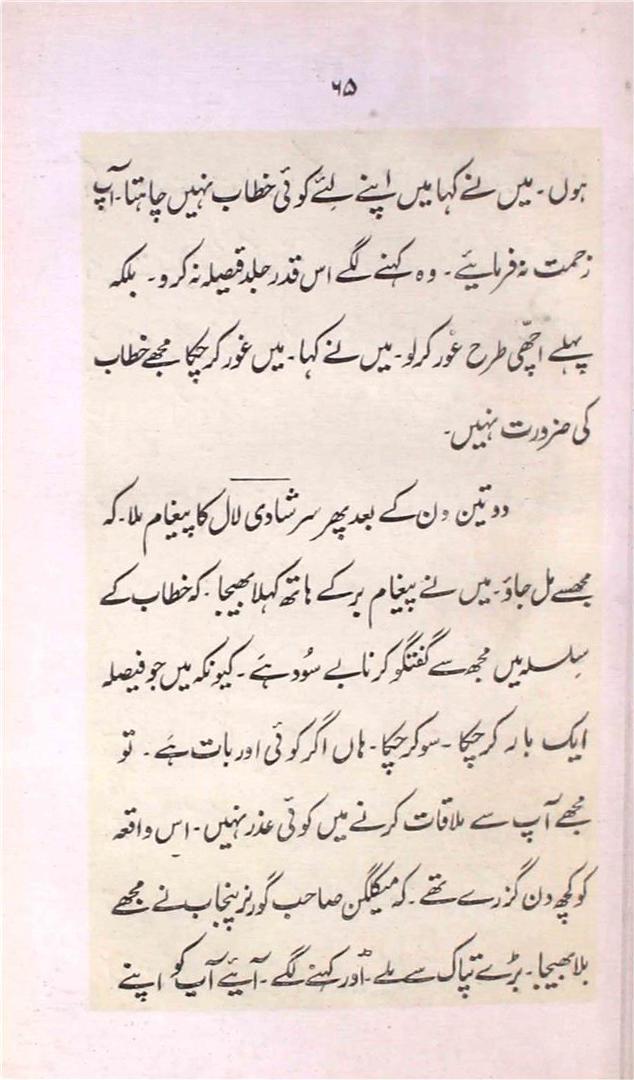 ۶۵
ہوں۔ میں نے کہا میں اپنے لئے کوئی خطاب نہیں چاہتا۔ آپ
زحمت نہ فرمایئے۔ وہ کہنے لگے اس قدر جلد فیصلہ نہ کرو۔ بلکہ
پہلے اچھّی طرح غور کر لو۔ میں نے کہا۔ میں غور کر چکا مجھے خطاب
کی ضرورت نہیں۔
دو تین دن کے بعد پھر سر شادی لال کا پیغام ملا۔ کہ
مجھسے مل جاؤ۔ میں نے پیغام بر کے ہاتھ کہلا بھیجا۔ کہ خطاب کے
سِلسلہ میں مجھ سے گفتگو کرنا بے سُود ہَے۔ کیونکہ میں جو فیصلہ
ایک بار کر چکا۔ سو کر چکا۔ ہاں اگر کوئی اور بات ہَے۔ تو
مجھے آپ سے ملاقات کرنے میں کوئی عذر نہیں۔ اس واقعہ
کو کچھ دن گزرے تھے۔ کہ میکلگن صاحب گورنر پنجاب نے مجھے
بلا بھیجا۔ بڑے تپاک سے ملے۔ اور کہنے لگے۔ آیئے آپ کو اپنے